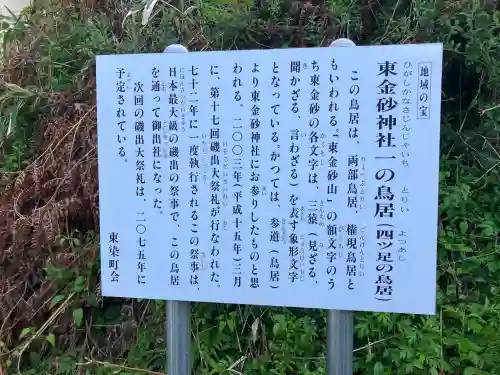 地域の宝
ひがしかなさじんじゃいち とりい よつあし
東金砂神社一の鳥居(四ツ足の鳥居)
この鳥居は、両部鳥居、権現鳥居と
もいわれる「東金砂山」の額文字のう
ち東金砂の各文字は、三猿(見ざる、
聞かざる、言わざる)を表す象形文字
となっている。かつては、参道(鳥居)
より東金砂神社にお参りしたものと思
われる。二〇〇三年(平成十五年)三月
に、第十七回磯出大祭礼が行なわれた。
七十二年に一度執行されるこの祭事は、
日本最大級の磯出の祭事で、この鳥居
を通って御出社になった。
次回の磯出大祭礼は、二〇七五年に
予定されている。
東染町会